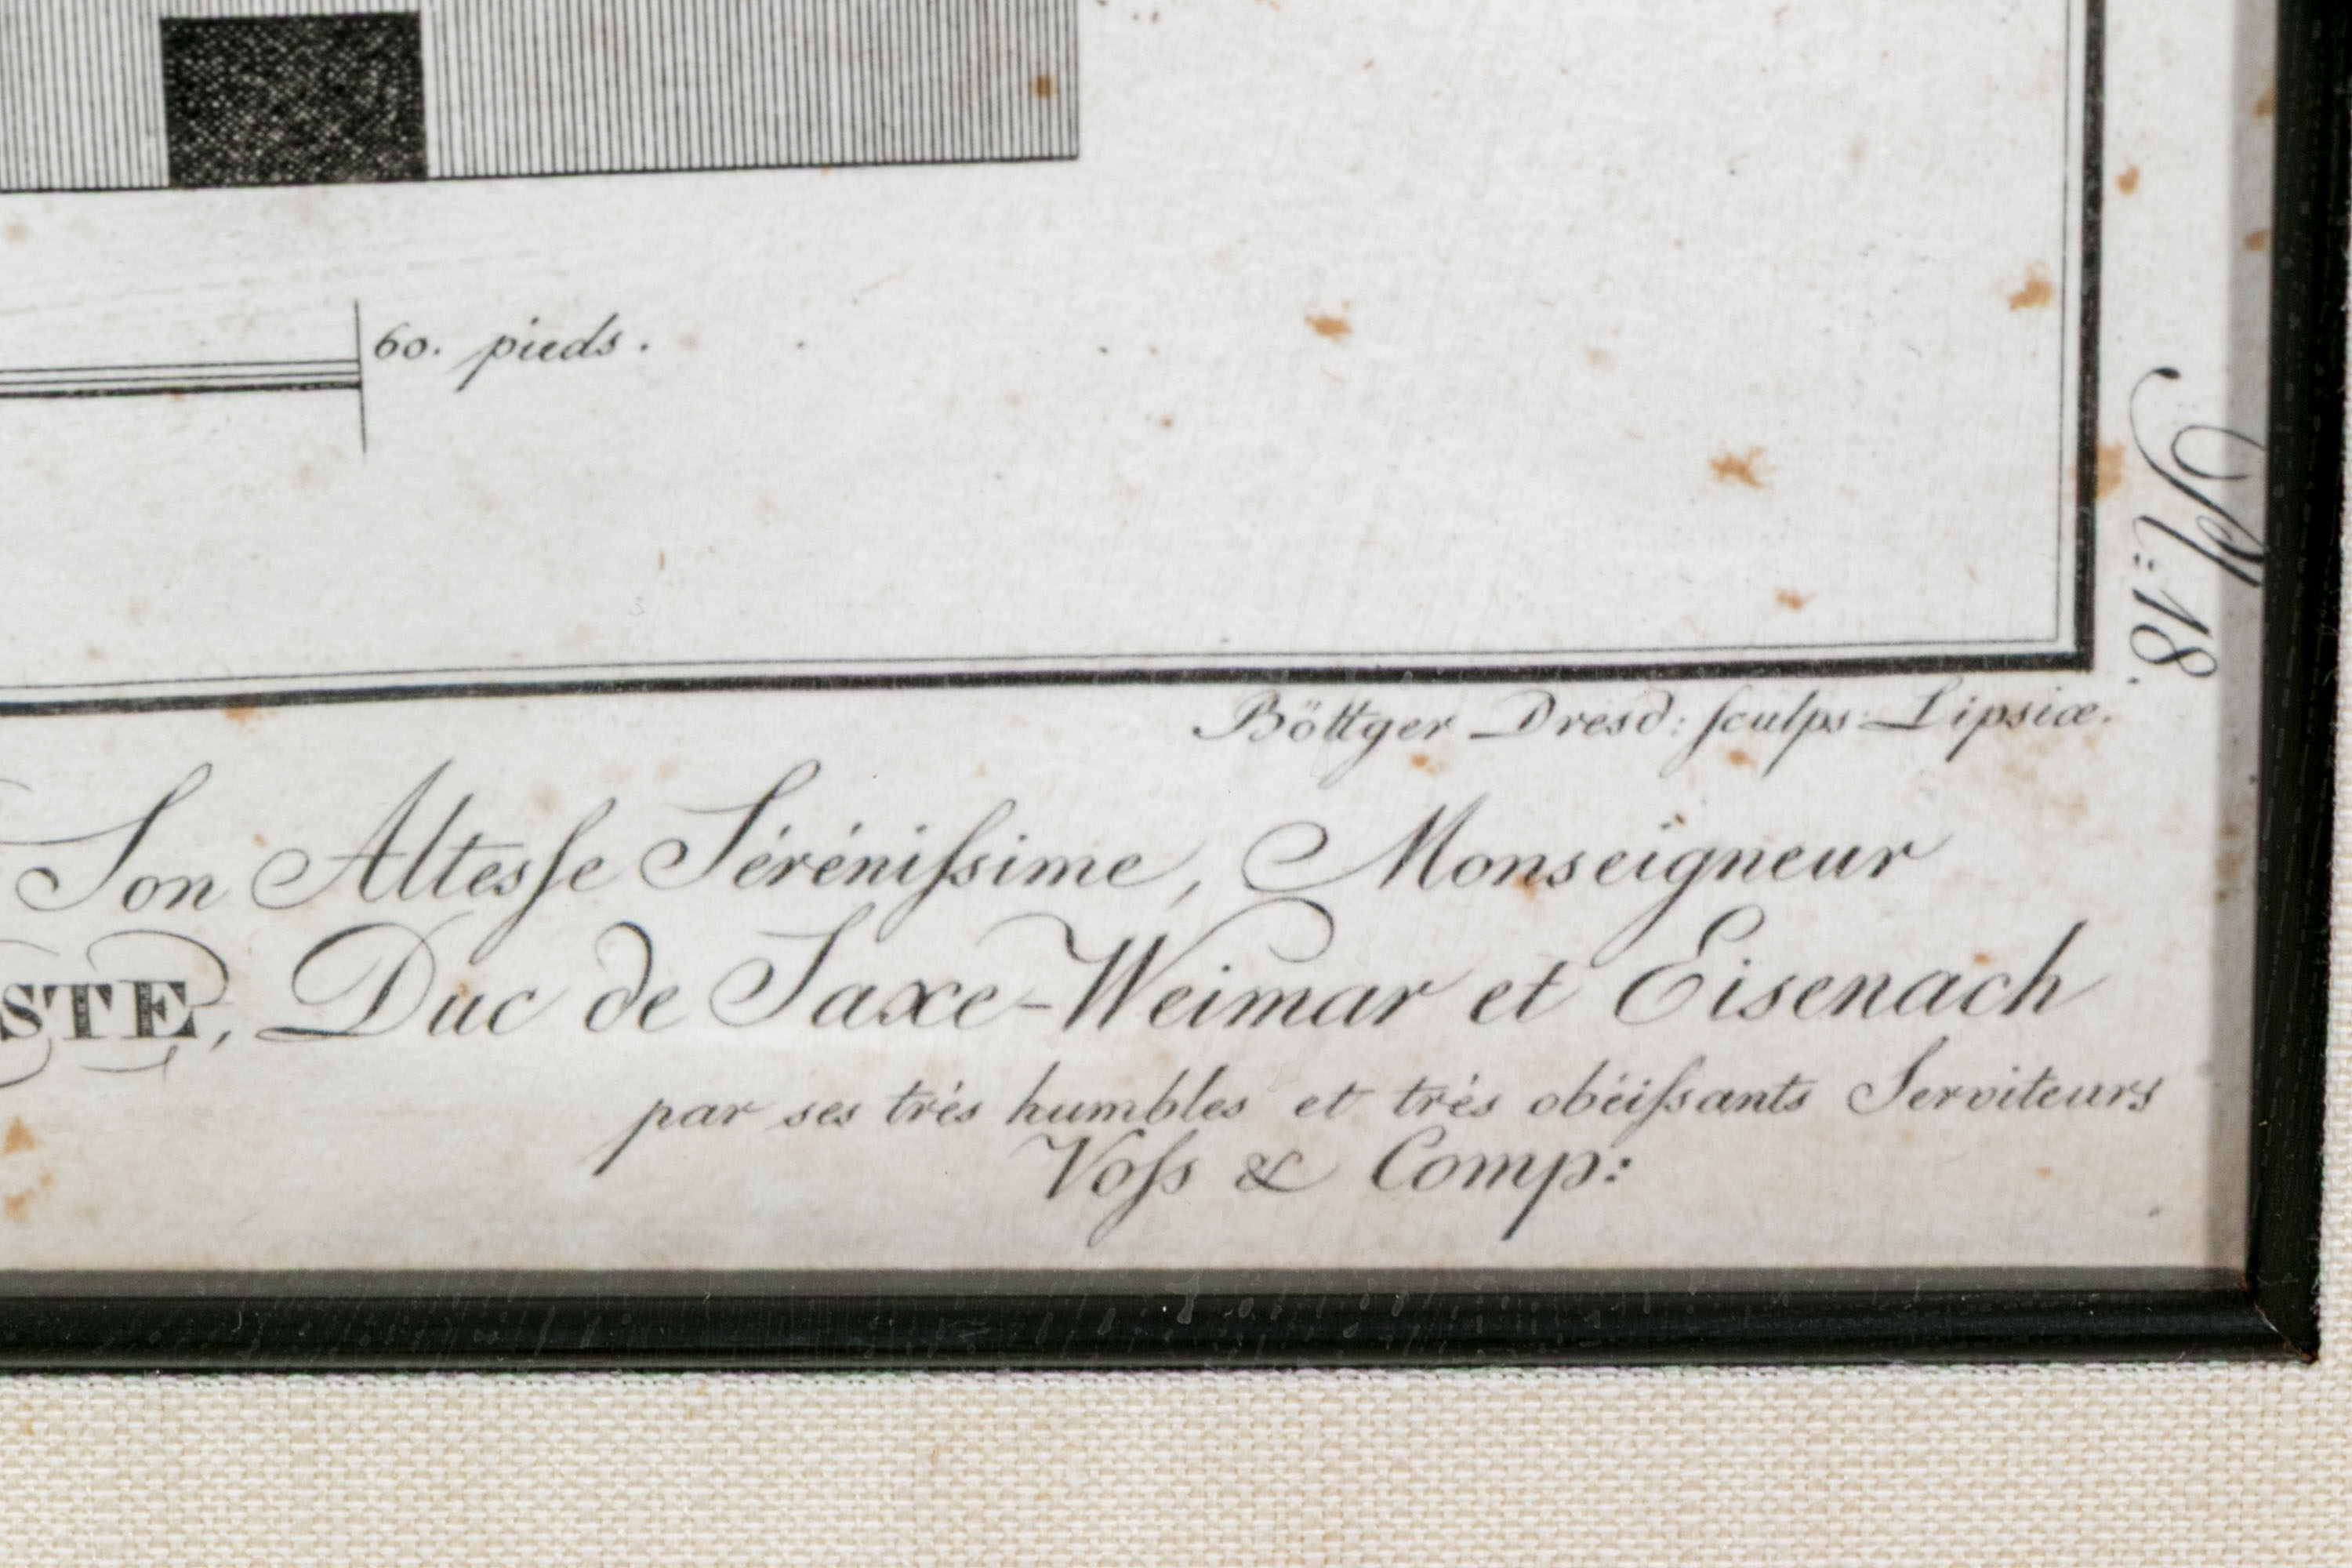 60. pieds.
Pl: 18.
Böttger Dresd: ſculps: Lipsiæ.
Son Altesſe Séréniſsime, Monseigneur
STE, Duc de Saxe-Weimar et Eisenach
par ses trés humbles et trés obéiſsants Serviteurs
Voſs & Comp: